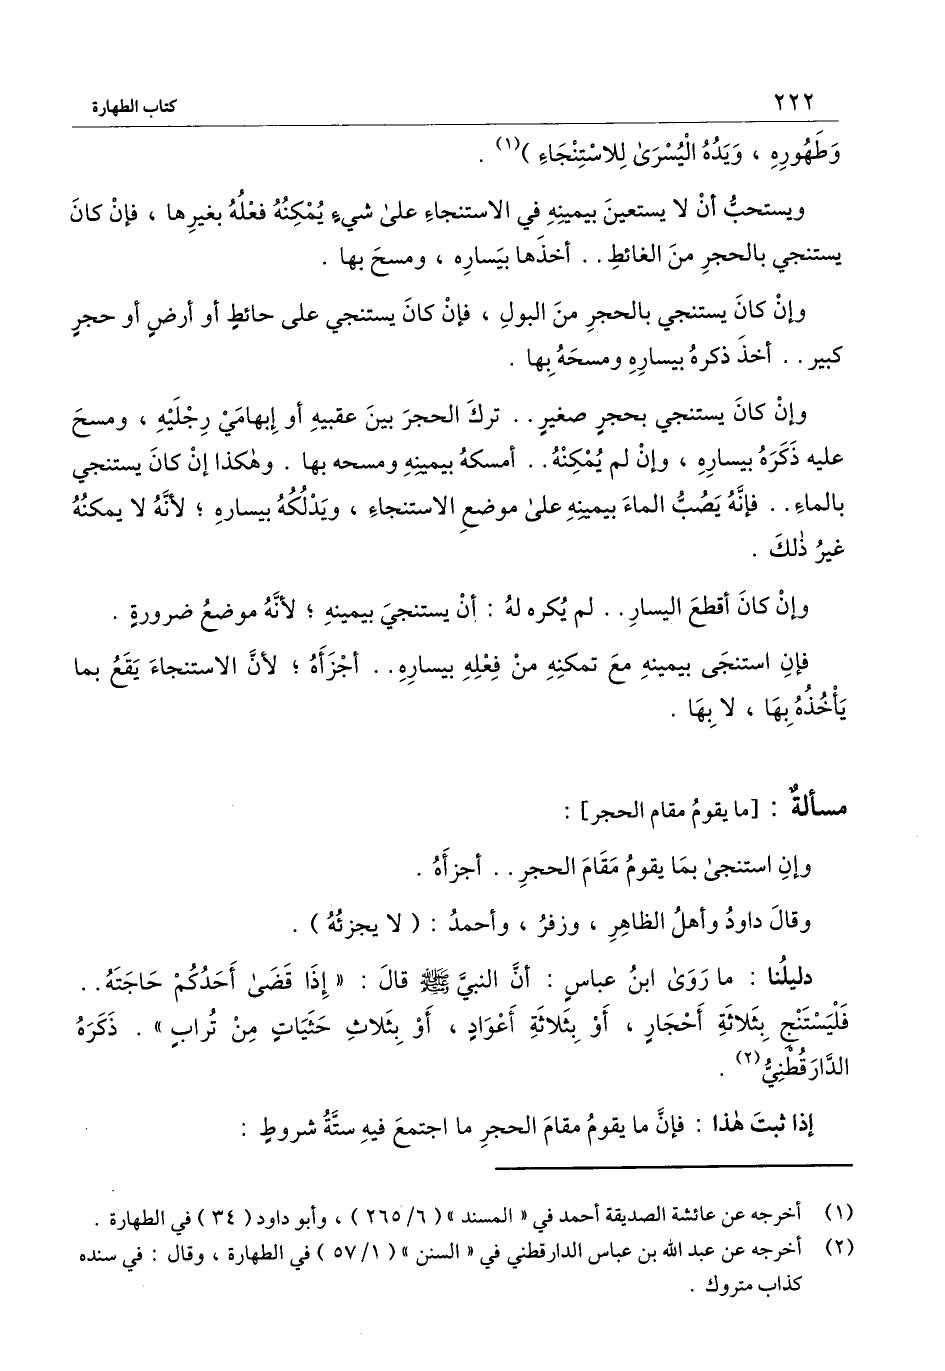 ٢٢٢ كتاب الطهارة
وَطَهُورِهِ ، وَيَدُهُ الْيُسْرَىٰ لِلاسْتِنْجَاءِ )(١) .
ويستحبُّ أنْ لا يستعينَ بيمينِهِ في الاستنجاءِ علىٰ شيءٍ يُمْكِنُهُ فعْلُهُ بغيرِها ، فإنْ كانَ
يستنجي بالحجرِ منَ الغائطِ . . أخذَها بيَسارِه ، ومسحَ بها .
وإنْ كانَ يستنجي بالحجرِ منَ البولِ ، فإنْ كانَ يستنجي على حائطٍ أو أرضٍ أو حجرٍ
كبير . . أخذَ ذكرهُ بيسارِهِ ومسحَهُ بِها .
وإنْ كانَ يستنجي بحجرٍ صغيرٍ . . تركَ الحجرَ بينَ عقبيهِ أو إبهامَيْ رِجْلَيْهِ ، ومسحَ
عليه ذَكَرَهُ بيسارِهِ ، وإنْ لم يُمْكِنْهُ . . أمسكهُ بيمينِهِ ومسحه بها . وهٰكذا إنْ كانَ يستنجي
بالماءِ . . فإنَّهُ يَصُبُّ الماءَ بيمينِهِ علىٰ موضعِ الاستنجاءِ ، ويَدْلُكُهُ بيساره ؛ لأنَّهُ لا يمكنُهُ
غيرُ ذٰلكَ .
وإنْ كانَ أقطعَ اليسارِ . . لم يُكره لهُ : أنْ يستنجيَ بيمينهِ ؛ لأنَّهُ موضعُ ضرورةٍ .
فإنِ استنجَى بيمينهِ معَ تمكنِهِ منْ فِعْلِهِ بيسارِهِ . . أجْزَأَهُ ؛ لأنَّ الاستنجاءَ يَقَعُ بما
يَأْخُذُهُ بِهَا ، لا بِهَا .
مسألةٌ : [ما يقومُ مقام الحجر] :
وإنِ استنجىٰ بمَا يقومُ مَقَامَ الحجرِ . . أجزأَهُ .
وقالَ داودُ وأهلُ الظاهرِ ، وزفرُ ، وأحمدُ : ( لا يجزئُهُ ) .
دليلُنا : ما رَوَىٰ ابنُ عباسٍ : أنَّ النبيَّ ﷺ قالَ : « إِذَا قَضَىٰ أَحَدُكُمْ حَاجَتَهُ . .
فَلْيَسْتَنْجِ بِثَلاثَةِ أَحْجَارٍ ، أَوْ بِثَلاثَةِ أَعْوَادٍ ، أَوْ بِثَلاثِ حَثَيَاتٍ مِنْ تُرابٍ » . ذَكَرَهُ
الدَّارَقُطْنِيُّ(٢) .
إذا ثبتَ هٰذا : فإنَّ ما يقومُ مقامَ الحجرِ ما اجتمعَ فيهِ ستَّةُ شروطٍ :
(١) أخرجه عن عائشة الصديقة أحمد في « المسند » ( ٢٦٥/٦ ) ، وأبو داود ( ٣٤ ) في الطهارة .
(٢) أخرجه عن عبد الله بن عباس الدارقطني في « السنن » ( ٥٧/١ ) في الطهارة ، وقال : في سنده
كذاب متروك .